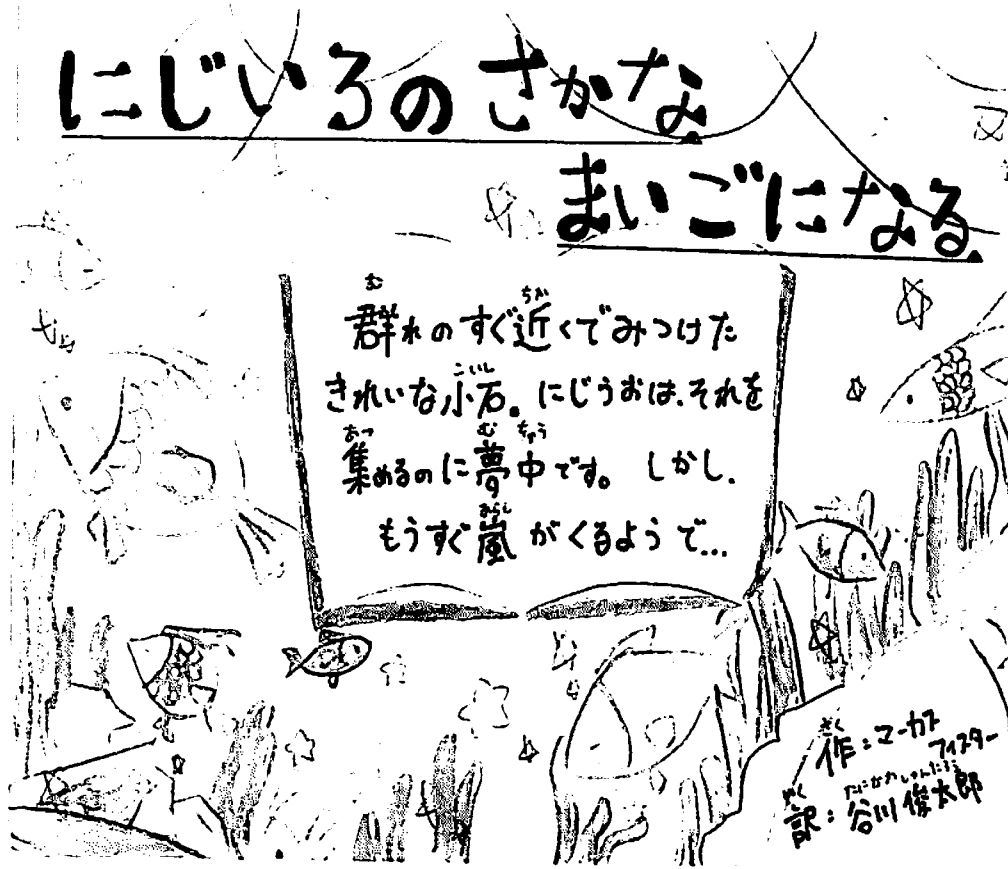 にじいろのさかな
まいごになる
群れのすぐ近くでみつけた
きれいな小石。にじうおは、それを
集めるのに夢中です。しかし、
もうすぐ嵐がくるようで…
作：マーカス
フィスター
訳：谷川俊太郎